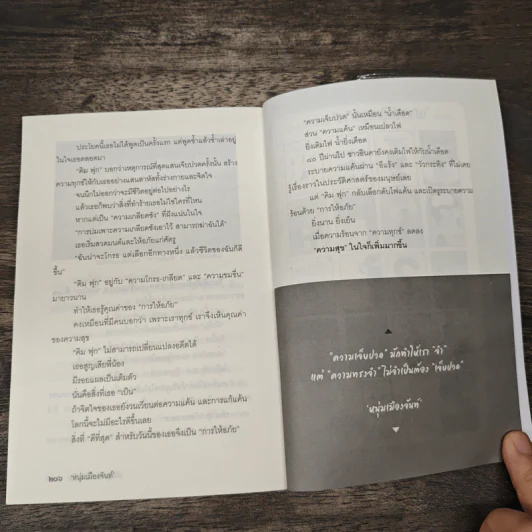 ประโยคนี้เธอไม่ได้พูดเป็นครั้งแรก แต่พูดซ้ำแล้วซ้ำเล่าอยู่
ในใจเธอตลอดมา
"คิม ฟุก" บอกว่าเหตุการณ์ที่สุดแสนเจ็บปวดครั้งนั้น สร้าง
ความทุกข์ให้กับเธออย่างแสนสาหัสทั้งร่างกายและจิตใจ
จนนึกไม่ออกว่าจะมีชีวิตอยู่ต่อไปอย่างไร
แล้วเธอก็พบว่าสิ่งที่ทำร้ายเธอไม่ใช่ใครที่ไหน
หากแต่เป็น "ความเกลียดชัง" ที่ฝังแน่นในใจ
"การบ่มเพาะความเกลียดชังเอาไว้ สามารถฆ่าฉันได้"
เธอเริ่มสวดมนต์และให้อภัยแก่ศัตรู
"ฉันน่าจะโกรธ แต่เลือกอีกทางหนึ่ง แล้วชีวิตของฉันก็ดี
ขึ้น"
"คิม ฟุก" อยู่กับ "ความโกรธ-เกลียด" และ "ความขมขื่น"
มายาวนาน
ทำให้เธอรู้คุณค่าของ "การให้อภัย"
คงเหมือนที่มีคนบอกว่า เพราะเราทุกข์ เราจึงเห็นคุณค่า
ของความสุข
"คิม ฟุก" ไม่สามารถเปลี่ยนแปลงอดีตได้
เธอสูญเสียพี่น้อง
มีรอยแผลเป็นเต็มตัว
นั่นคือสิ่งที่เธอ "เป็น"
ถ้าจิตใจของเธอยังวนเวียนต่อความแค้น และการแก้แค้น
โลกนี้จะไม่มีอะไรดีขึ้นเลย
สิ่งที่ "ดีที่สุด" สำหรับวันนี้ของเธอจึงเป็น "การให้อภัย"
๒๐๖ 'หนุ่มเมืองจันท์'
"ความเจ็บปวด" นั้นเหมือน "น้ำเดือด"
ส่วน "ความแค้น" เหมือนเปลวไฟ
ยิ่งเติมไฟ น้ำยิ่งเดือด
๔๐ ปีผ่านไป ชาวสีนคายังคงเติมไฟให้กับน้ำเดือด
ระบายความแค้นผ่าน "อีแร้ง" และ "วัวกระทิง" ที่ไม่เคย
รู้เรื่องราวในประวัติศาสตร์ของมนุษย์เลย
แต่ "คิม ฟุก" กลับเลือกดับไฟแค้น และเปิดรูระบายความ
ร้อนด้วย "การให้อภัย"
ยิ่งนาน ยิ่งเย็น
เมื่อความร้อนจาก "ความทุกข์" ลดลง
"ความสุข" ในใจก็เพิ่มมากขึ้น
"ความเจ็บปวด" มักทำให้เรา "จำ"
แต่ "ความทรงจำ" ไม่จำเป็นต้อง "เจ็บปวด"
'หนุ่มเมืองจันท์'